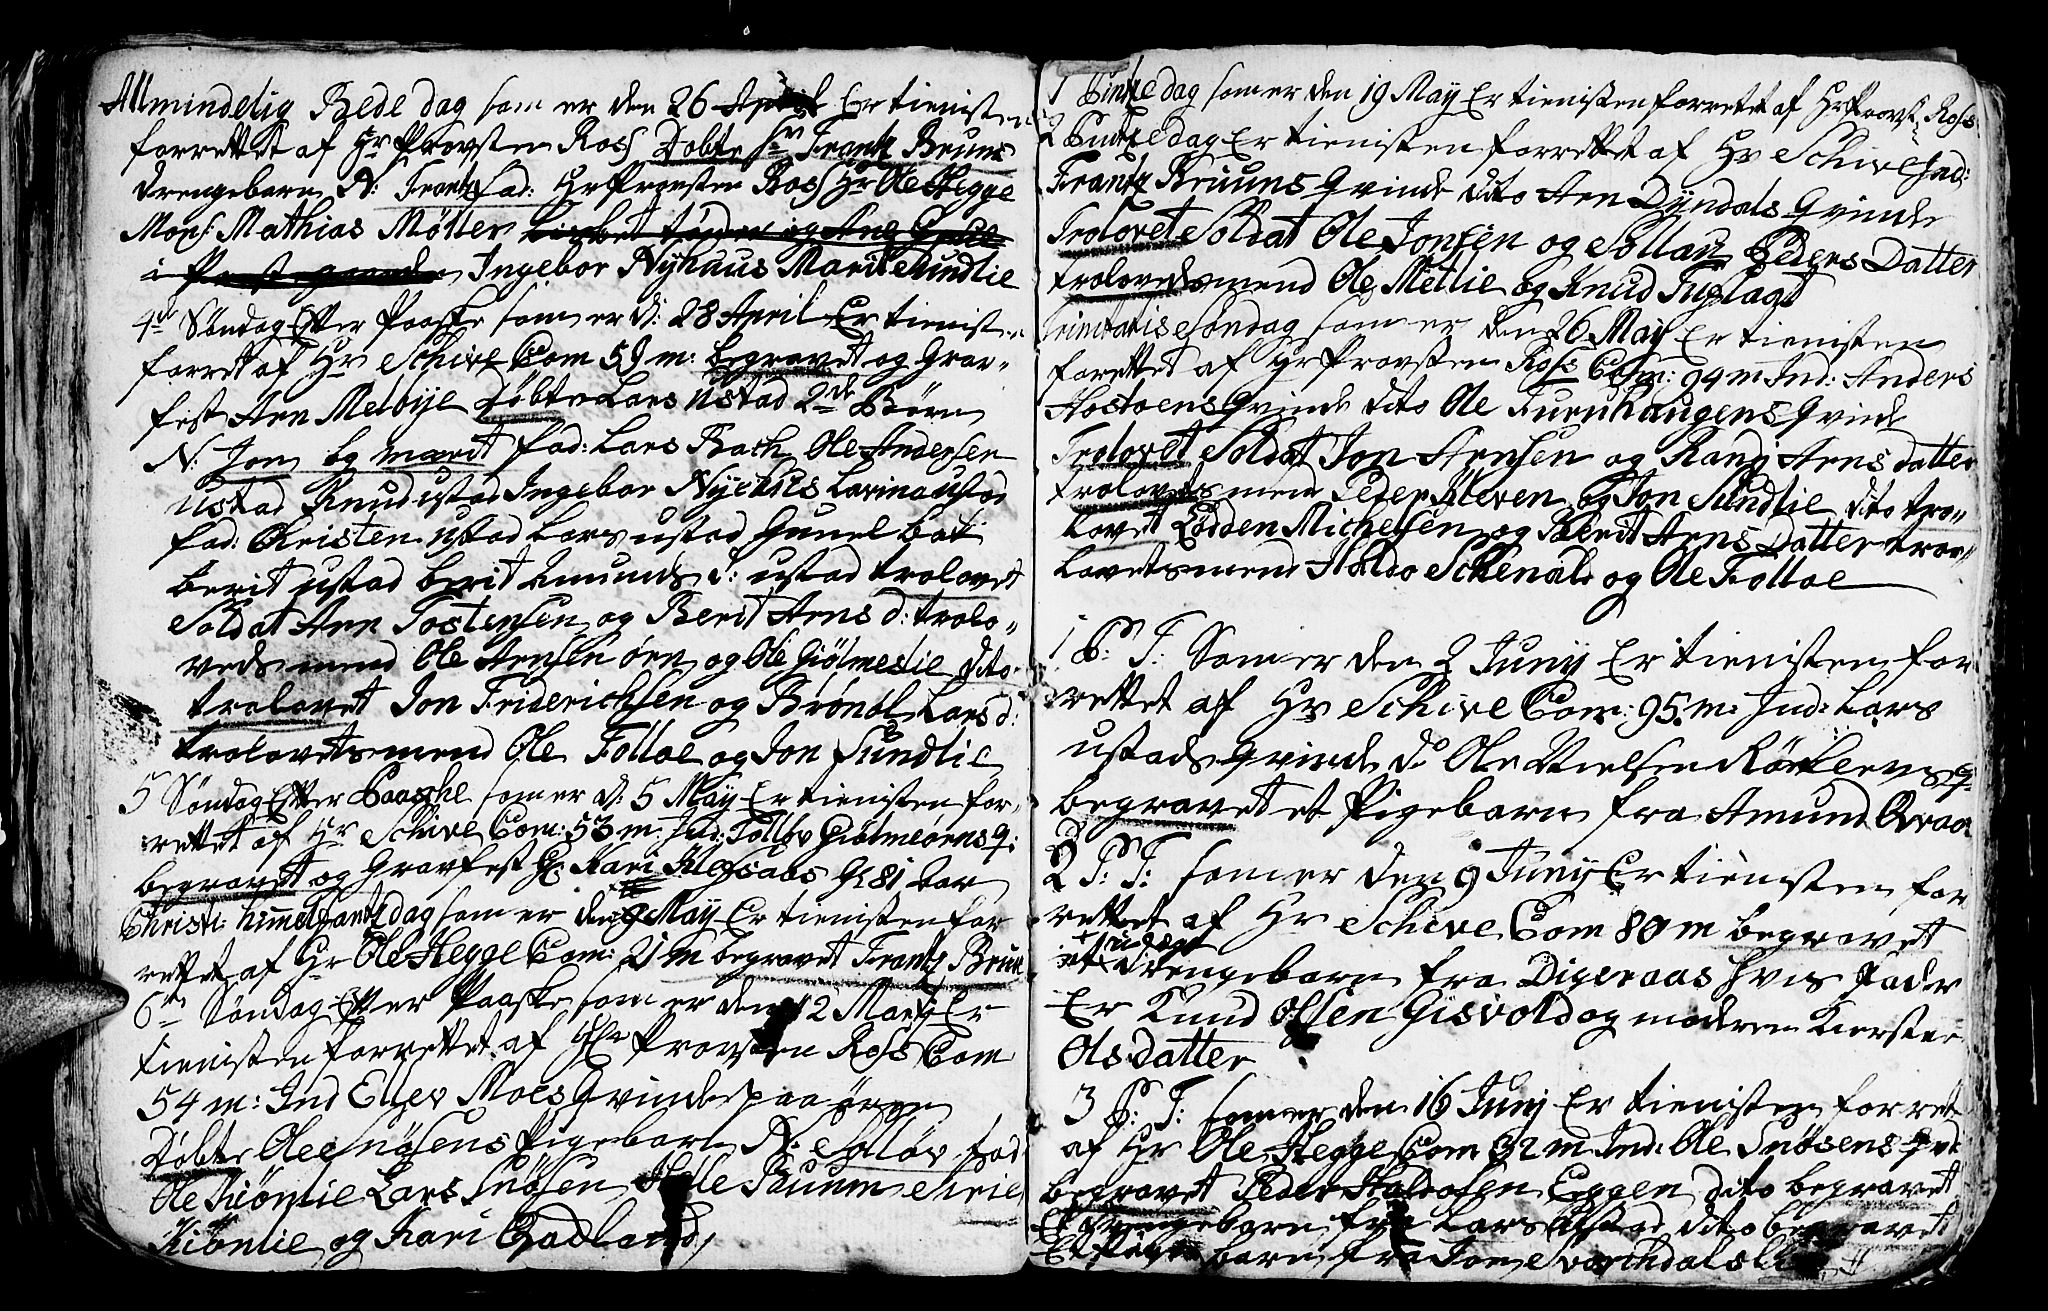 Allmindelig Bede dag som er den 26 April Er tienisten
forrettet af Hr Provsten Ross Døbte Sr Frantz Bruns
drengebarn N: Frantz fad: Hr Provsten Ross Hr Ole Hegge
Mons: Mathias Møller
Ingebor Nyhuus Marit Sundlie
4de Søndag Efter Paaske som er d: 28 April Er tienisten
forret af Hr Schive Com 59 m: begravet og Grav-
fest Arn Melbye Døbte Lars Ustad 2de Børn
N: Jon og marit fad: Lars Bach Ole Andersen
Ustad Knud ustad Ingebor Nyehus Lavina ustad
fad: Christen ustad Lars ustad Gunel bak
berit ustad berit Amunds d: ustad trolovet
Soldat Arn Tostensen og Berit Arns d: trolo-
veds mend Ole Arnsen ørn og Ole Giølmeslie dito
trolovet Jon Friderichsen og Brønel Lars d:
trolovetsmend Ole Folloe og Jon Sundlie
5 Søndag Efter Paaske som er d: 5 May Er tienisten for-
rettet af Hr Schive Com: 53 m: Ind: Tollev Giølmeørns q:
begravet og Gravfest Gl: Kari Klefsaas Gl 81 aar
Christi himelfartz dag som er den 9 May Er tienisten for
rettet af Hr Ole Hegge Com: 21 m begravet Frantz Brun
6te Søndag Efter Paaske som er den 12 Martz Er
tienisten forrettet af Hr Provsten Ross Com
54 m: Ind Ellev Moes Qvinde paa ørn
Døbte Ole Snøsens Pigebarn N: Solløv fad
Ole Kiønlie Lars Snøsen Helle Paunm
Kiønlie og Kari Qvadland
1 Pintzedag som er den 19 May Er tienisten forrettet af Hr Provst: Ross
2 Pintzedag Er tienisten forrettet af Hr Schive Ind:
Frantz Bruuns Qvinde dito Arn Dyndals Qvinde
Trolovet Soldat Ole Jonsen og Sollau Peders Datter
trolovedsmend Ole Mellie og Knud Fuglaas
Trinitatis Søndag som er den 26 May Er tienisten
forettet af Hr Provsten Ross Com: 94 m Ind: Anders
Hostoens Qvinde dito Ole Furuhaugens Qvinde
Trolovet Soldat Jon Arnsen og Randi Arns datter
trolovets mend Peder Kleven og Jon Sundlie dito tro-
lovet Lodden Michelsen og Berit Arns Datter troe-
lovetsmend Haldo Schenald og Ole Folloe
1 P: T: Som er den 2 Junij Er tienisten for
rettet af Hr Schive Com: 95 m: Ind: Lars
ustads qvinde do Ole Nielsen q:
begravet et Pigebarn fra Amund Qvaal
2 P: T: som er den 9 Junij Er tienisten for
rettet af Hr Schive Com 80 m begravet
et drengebarn fra Digeraas hvis Fader
Er Knud Olsen Gisvold og moderen Kiersten
Olsdatter
3 P: T: som er den 16 Junij Er tienisten forrett
af Hr Ole Hegge Com 32 m Ind: Ole Snøsens qvi:
begravet Peder Haldosen Eggen dito begravet
Et drengebarn fra Lars Ustad dito begravet
Et barn fra Jon